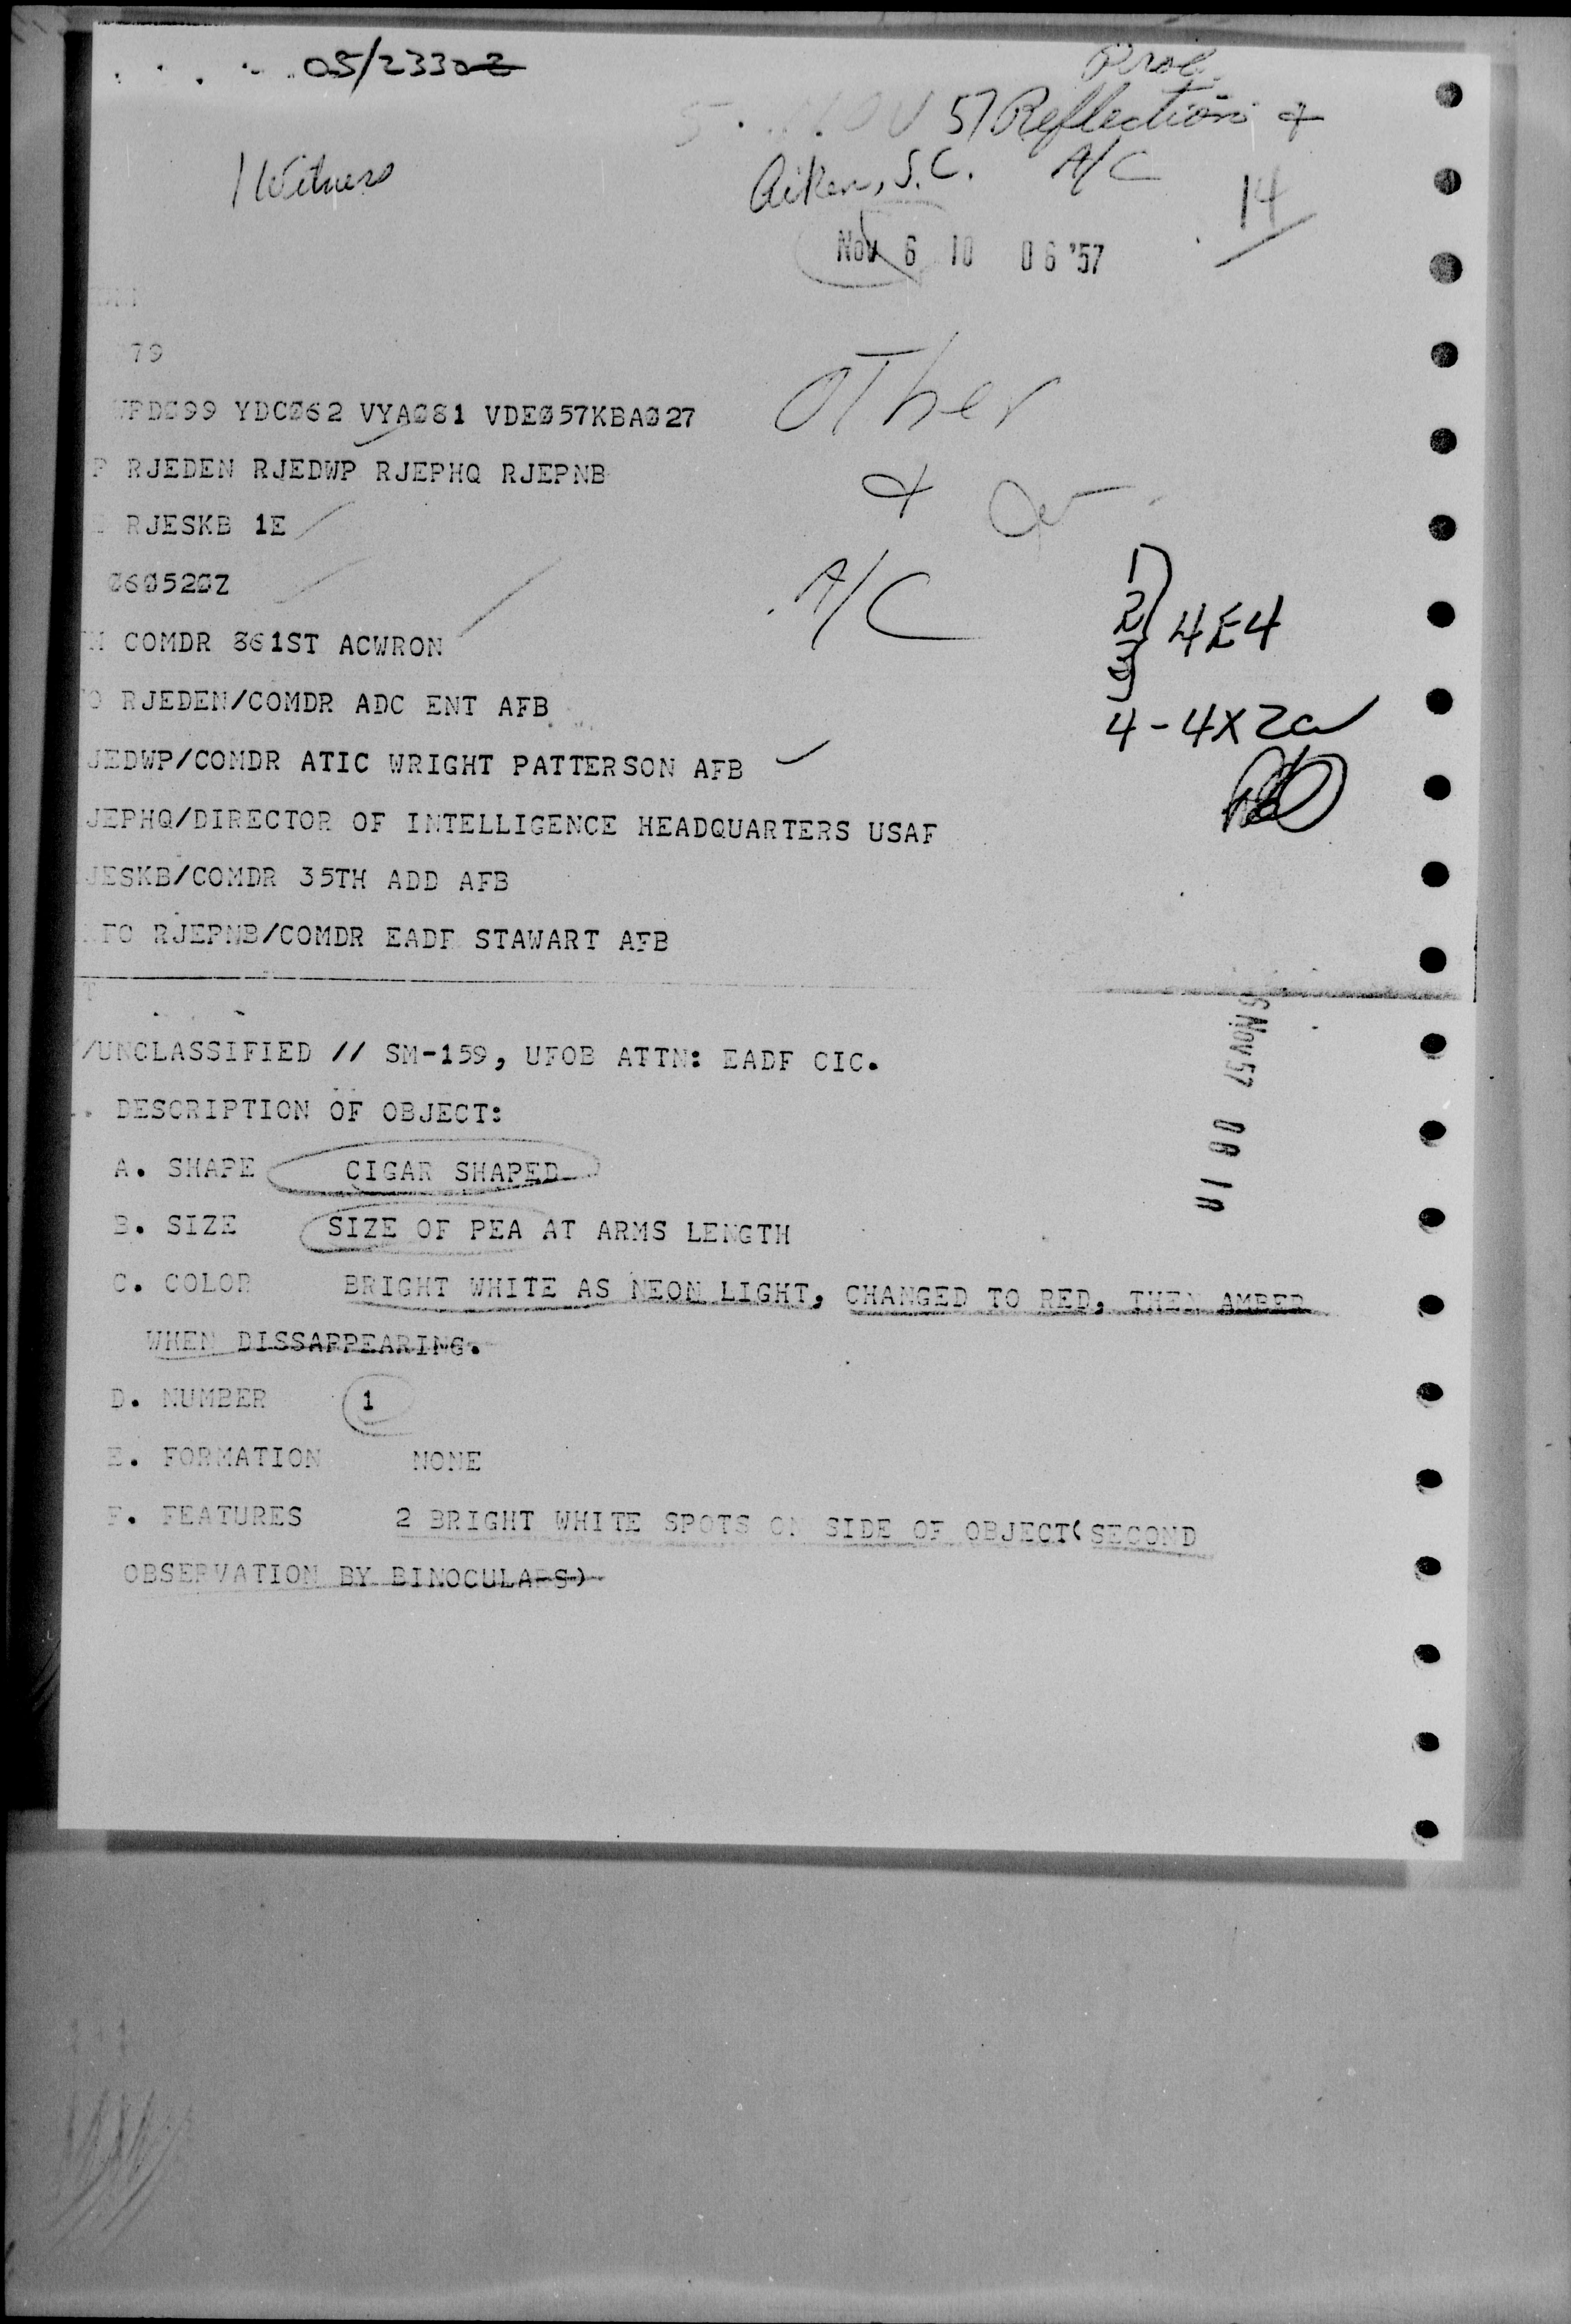 05/2330Z
Prob.
5 NOV 57 Reflection &
1 Witness
Aiken, S.C. A/C
14
NOV 6 10 06 '57
79
WPDØ99 YDCØ62 VYAØ81 VDEØ57KBAØ27
Other
P RJEDEN RJEDWP RJEPHQ RJEPNB
&
RJESKB 1E
Ø6Ø52ØZ
A/C
1
2
3
4E4
M COMDR 861ST ACWRON
O RJEDEN/COMDR ADC ENT AFB
4-4X2a
JEDWP/COMDR ATIC WRIGHT PATTERSON AFB
JEPHQ/DIRECTOR OF INTELLIGENCE HEADQUARTERS USAF
JESKB/COMDR 35TH ADD AFB
FO RJEPNB/COMDR EADF STAWART AFB
T
6 NOV 57
/UNCLASSIFIED // SM-159, UFOB ATTN: EADF CIC.
. DESCRIPTION OF OBJECT:
A. SHAPE CIGAR SHAPED
B. SIZE SIZE OF PEA AT ARMS LENGTH
C. COLOR BRIGHT WHITE AS NEON LIGHT, CHANGED TO RED, THEN AMBER
WHEN DISSAPPEARING.
D. NUMBER 1
E. FORMATION NONE
F. FEATURES 2 BRIGHT WHITE SPOTS ON SIDE OF OBJECT(SECOND
OBSERVATION BY BINOCULARS)